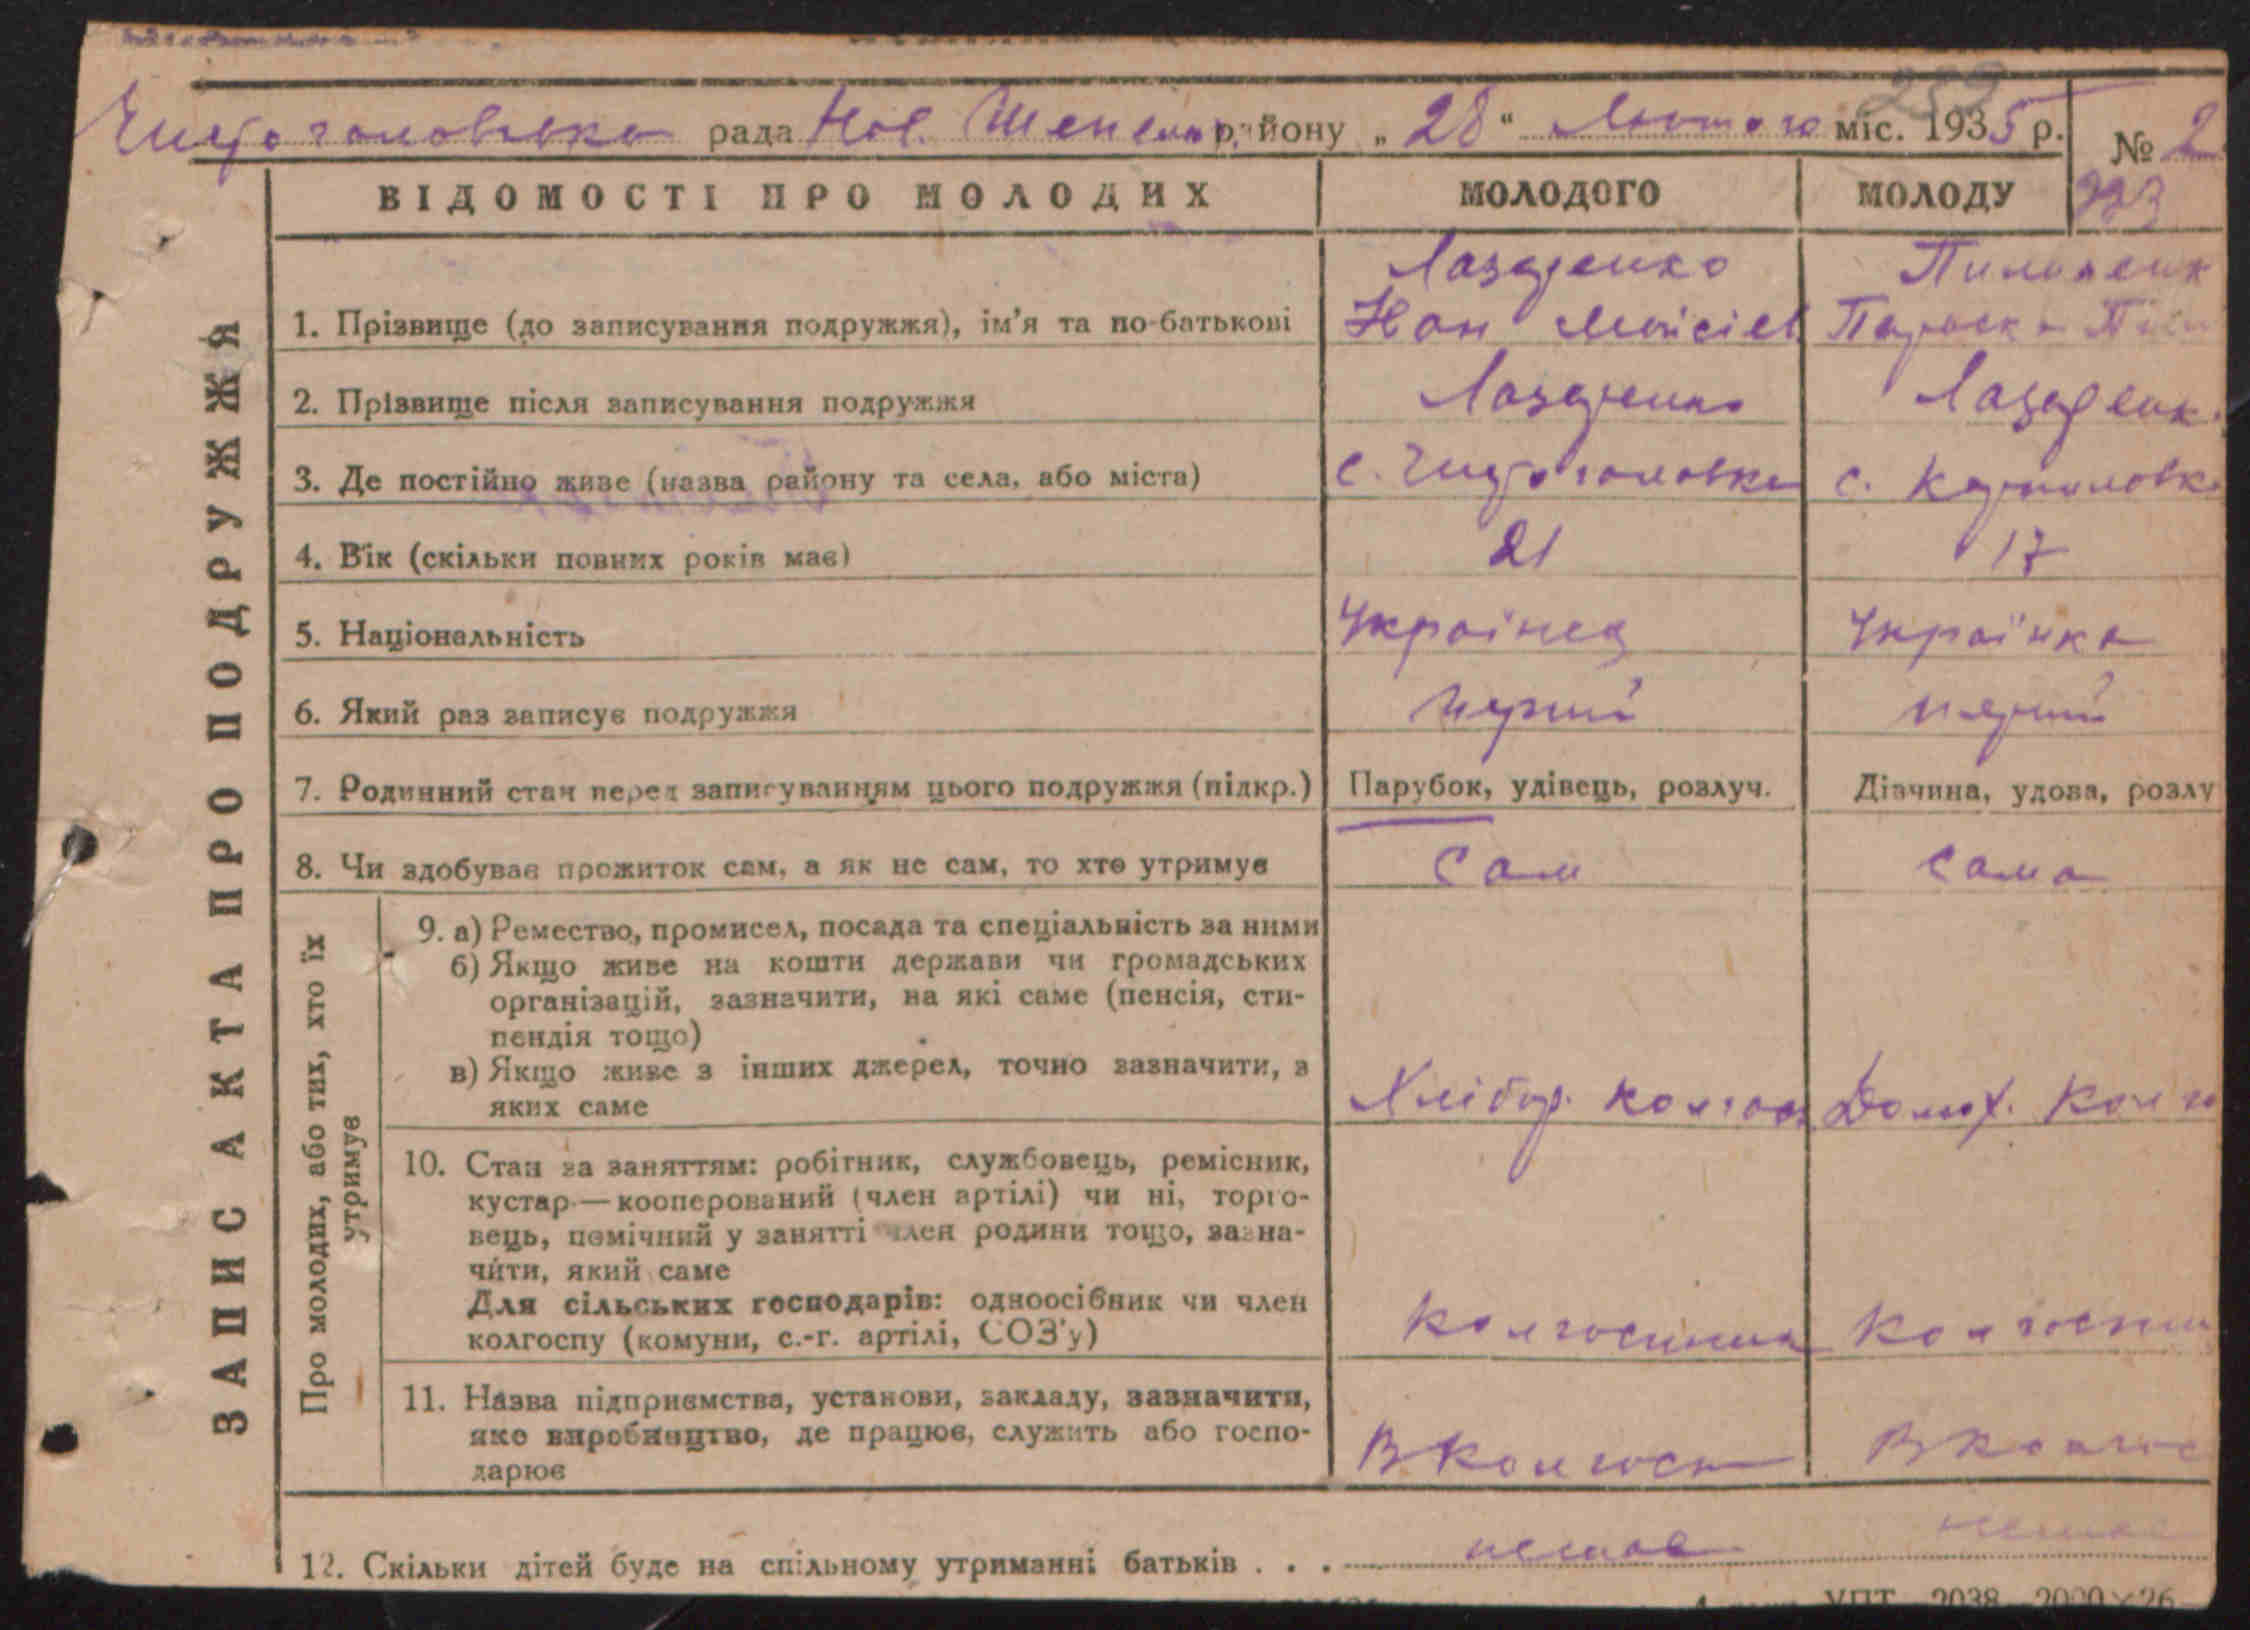 Чистоголовська рада Нов. Шепел. району „28“ Лютого міс. 1935 р.
252
№ 2
223
ВІДОМОСТІ ПРО МОЛОДИХ МОЛОДОГО МОЛОДУ
ЗАПИС АКТА ПРО ПОДРУЖЖЯ
Лазаренко
1. Прізвище (до записування подружжя), ім’я та по-батькові Мойсієв Параска
2. Прізвище після записування подружжя Лазаренко Лазаренк
3. Де постійно живе (назва району та села, або міста) с. Чистоголовка с.
4. Вік (скільки повних років має) 21 17
5. Національність Українец Українка
6. Який раз записує подружжя перший перший
7. Родинний стан перед записуванням цього подружжя (підкр.) Парубок, удівець, розлуч. Дівчина, удова, розлу
8. Чи здобуває прожиток сам, а як не сам, то хто утримує Сам Сама
Про молодих, або тих, хто їх
утримує
9. а) Ремество, промисел, посада та спеціальність за ними
б) Якщо живе на кошти держави чи громадських
організацій, зазначити, на які саме (пенсія, сти-
пендія тощо)
в) Якщо живе з інших джерел, точно зазначити, з
яких саме Хлібор. колгосп Домог. Колго
10. Стан за заняттям: робітник, службовець, ремісник,
кустар — кооперований (член артілі) чи ні, торго-
вець, помічний у занятті член родини тощо, зазна-
чити, який саме
Для сільських господарів: одноосібник чи член
колгоспу (комуни, с.-г. артілі, СОЗ’у) Колгоспник Колгоспни
11. Назва підприємства, установи, закладу, зазначити,
яке виробництво, де працює, служить або госпо-
дарює В Колгосп В Колгос
12. Скільки дітей буде на спільному утриманні батьків . . . немає немає
УПТ 2038